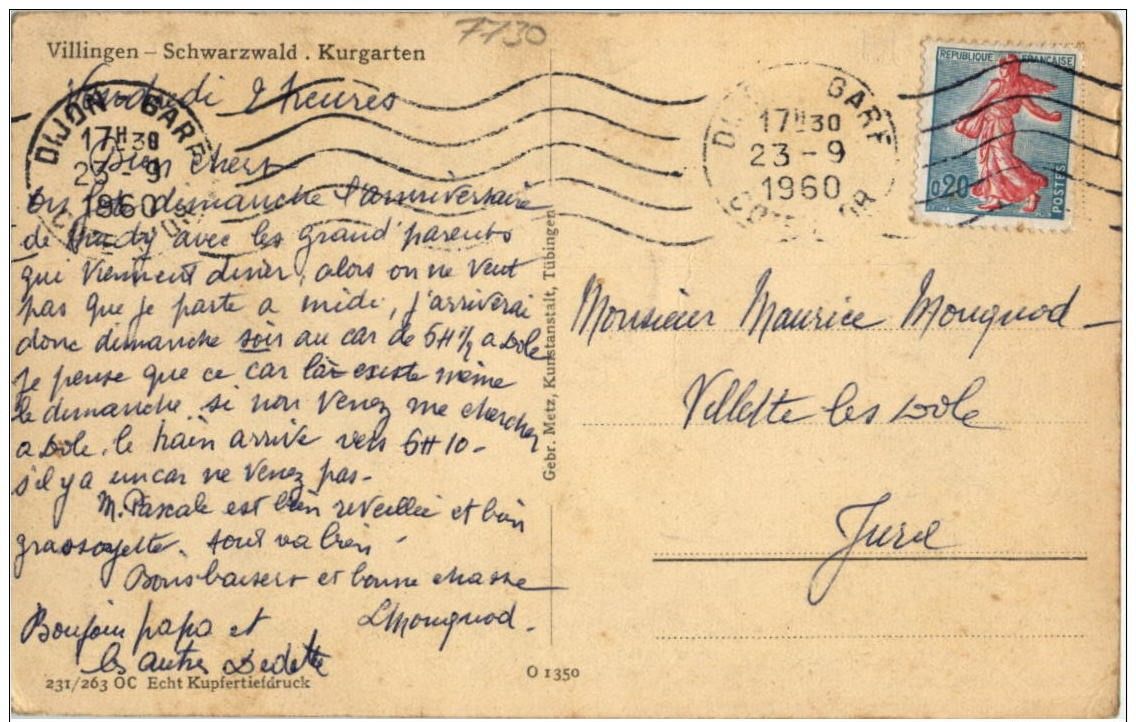 7730
Villingen – Schwarzwald . Kurgarten
Vendredi 2 heures
Bien chers
on fait dimanche l'anniversaire
de avec les grand'parents
qui viennent diner, alors on ne veut
pas que je parte a midi, j'arriverai
donc dimanche soir au car de 6H½ a Dole
Je pense que ce car là existe même
le dimanche. si non venez me chercher
a Dole. le train arrive vers 6H10 -
s'il y a un car ne venez pas -
M. Pascale est bien reveillée et bien
grassouyette. tout va bien -
Bons baisers et bonne chasse
LMougnod.
Bonjour papa et
les autres Dedette
231/263 OC Echt Kupfertiefdruck
Gebr. Metz, Kunstanstalt, Tübingen
O 1350
DIJON GARE
17H30
23 - 9
1960
DIJON GARE
17H30
23 - 9
1960
COTE D'OR
REPUBLIQUE FRANÇAISE
0,20
POSTES
Monsieur Maurice Mougnod -
Villette les Dole
Jura